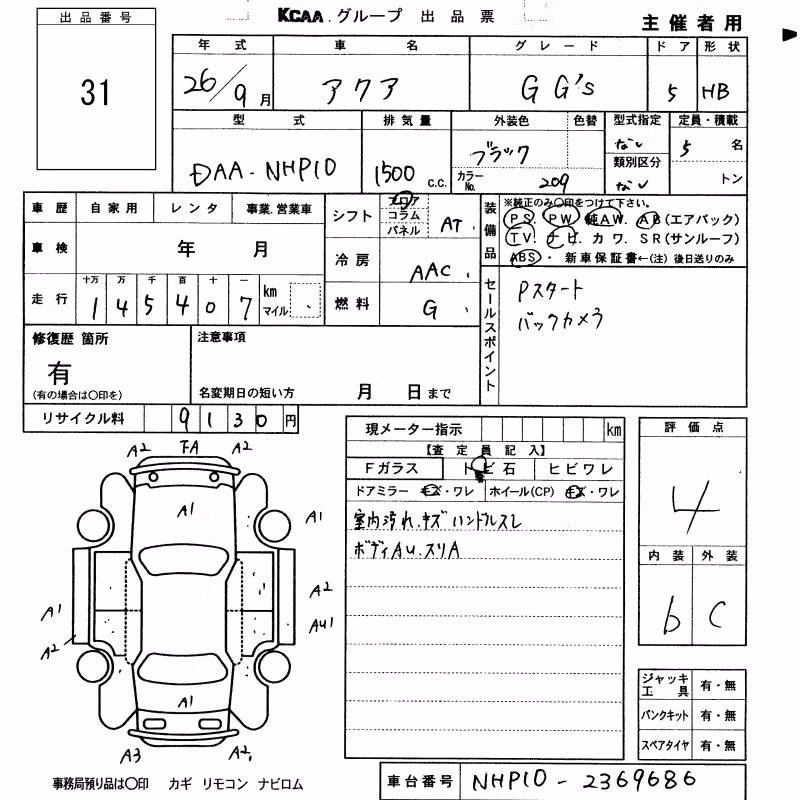 出品番号
31
KCAA.グループ 出品票
主催者用
年式 車名 グレード ドア 形状
26/9月 アクア G G's 5 HB
型式 排気量 外装色 色替 型式指定 定員・積載
DAA-NHP10 1500 C.C. ブラック なし 5 名
カラーNo. 209 類別区分 なし トン
車歴 自家用 レンタ 事業.営業車
車検 年 月
走行 十万 万 千 百 十 一
1 4 5 4 0 7 km マイル
シフト フロア コラム パネル AT
冷房 AAC
燃料 G
装備品
※純正のみ〇印をつけて下さい。
PS. PW. 純AW. AB(エアバック)
TV. ナビ. カワ. SR(サンルーフ)
ABS・ 新車保証書←(注) 後日送りのみ
セールスポイント
Pスタート
バックカメラ
修復歴 箇所
有
(有の場合は〇印を)
注意事項
名変期日の短い方 月 日まで
リサイクル料 9130円
現メーター指示 km
【査定員記入】
Fガラス トビ石 ヒビワレ
ドアミラー キズ・ワレ ホイール(CP) キズ・ワレ
室内汚れ.キズ ハンドルスレ
ボディAU.スリA
評価点
4
内装 外装
b C
ジャッキ工具 有・無
パンクキット 有・無
スペアタイヤ 有・無
A2 FA A2
A1
A1
A2
A1
AU1
A2
A1
A3 A2
事務局預り品は〇印 カギ リモコン ナビロム
車台番号 NHP10-2369686